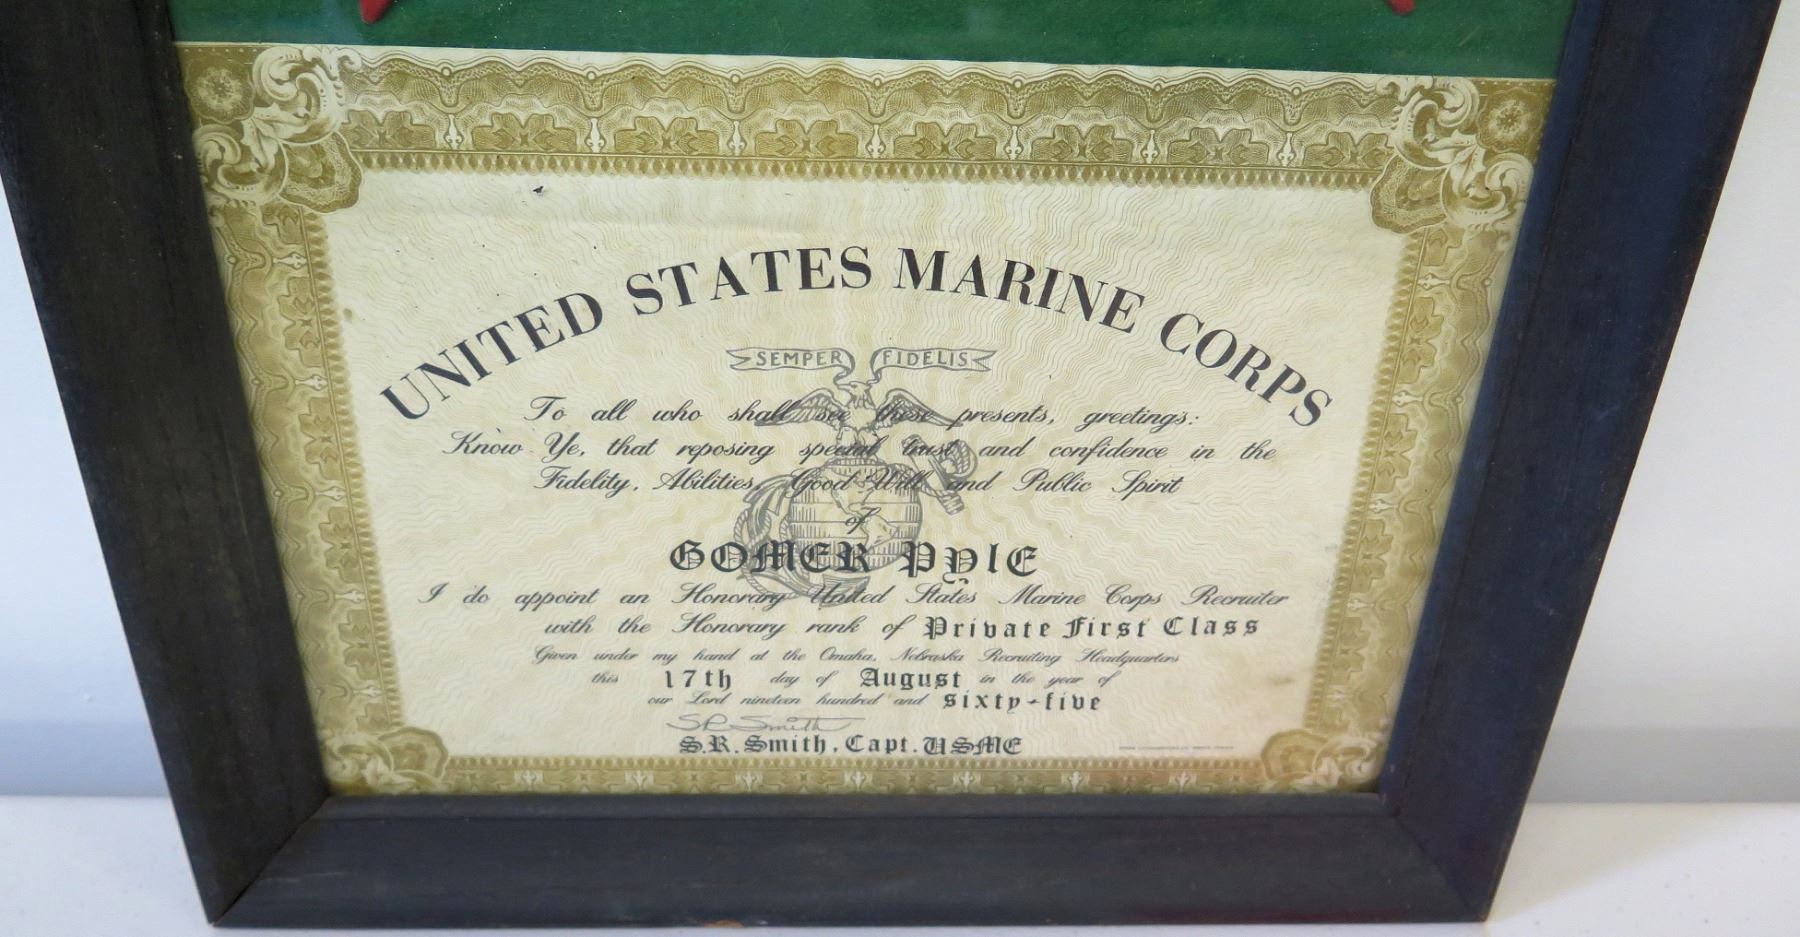 UNITED STATES MARINE CORPS
SEMPER FIDELIS
To all who shall see these presents, greetings:
Know Ye, that reposing special trust and confidence in the
Fidelity, Abilities, Good Will and Public Spirit
of
GOMER PylE
I do appoint an Honorary United States Marine Corps Recruiter
with the Honorary rank of Private First Class
Given under my hand at the Omaha, Nebraska Recruiting Headquarters
this 17th day of August in the year of
our Lord nineteen hundred and sixty-five
SR Smith
S.R. Smith, Capt. USMC